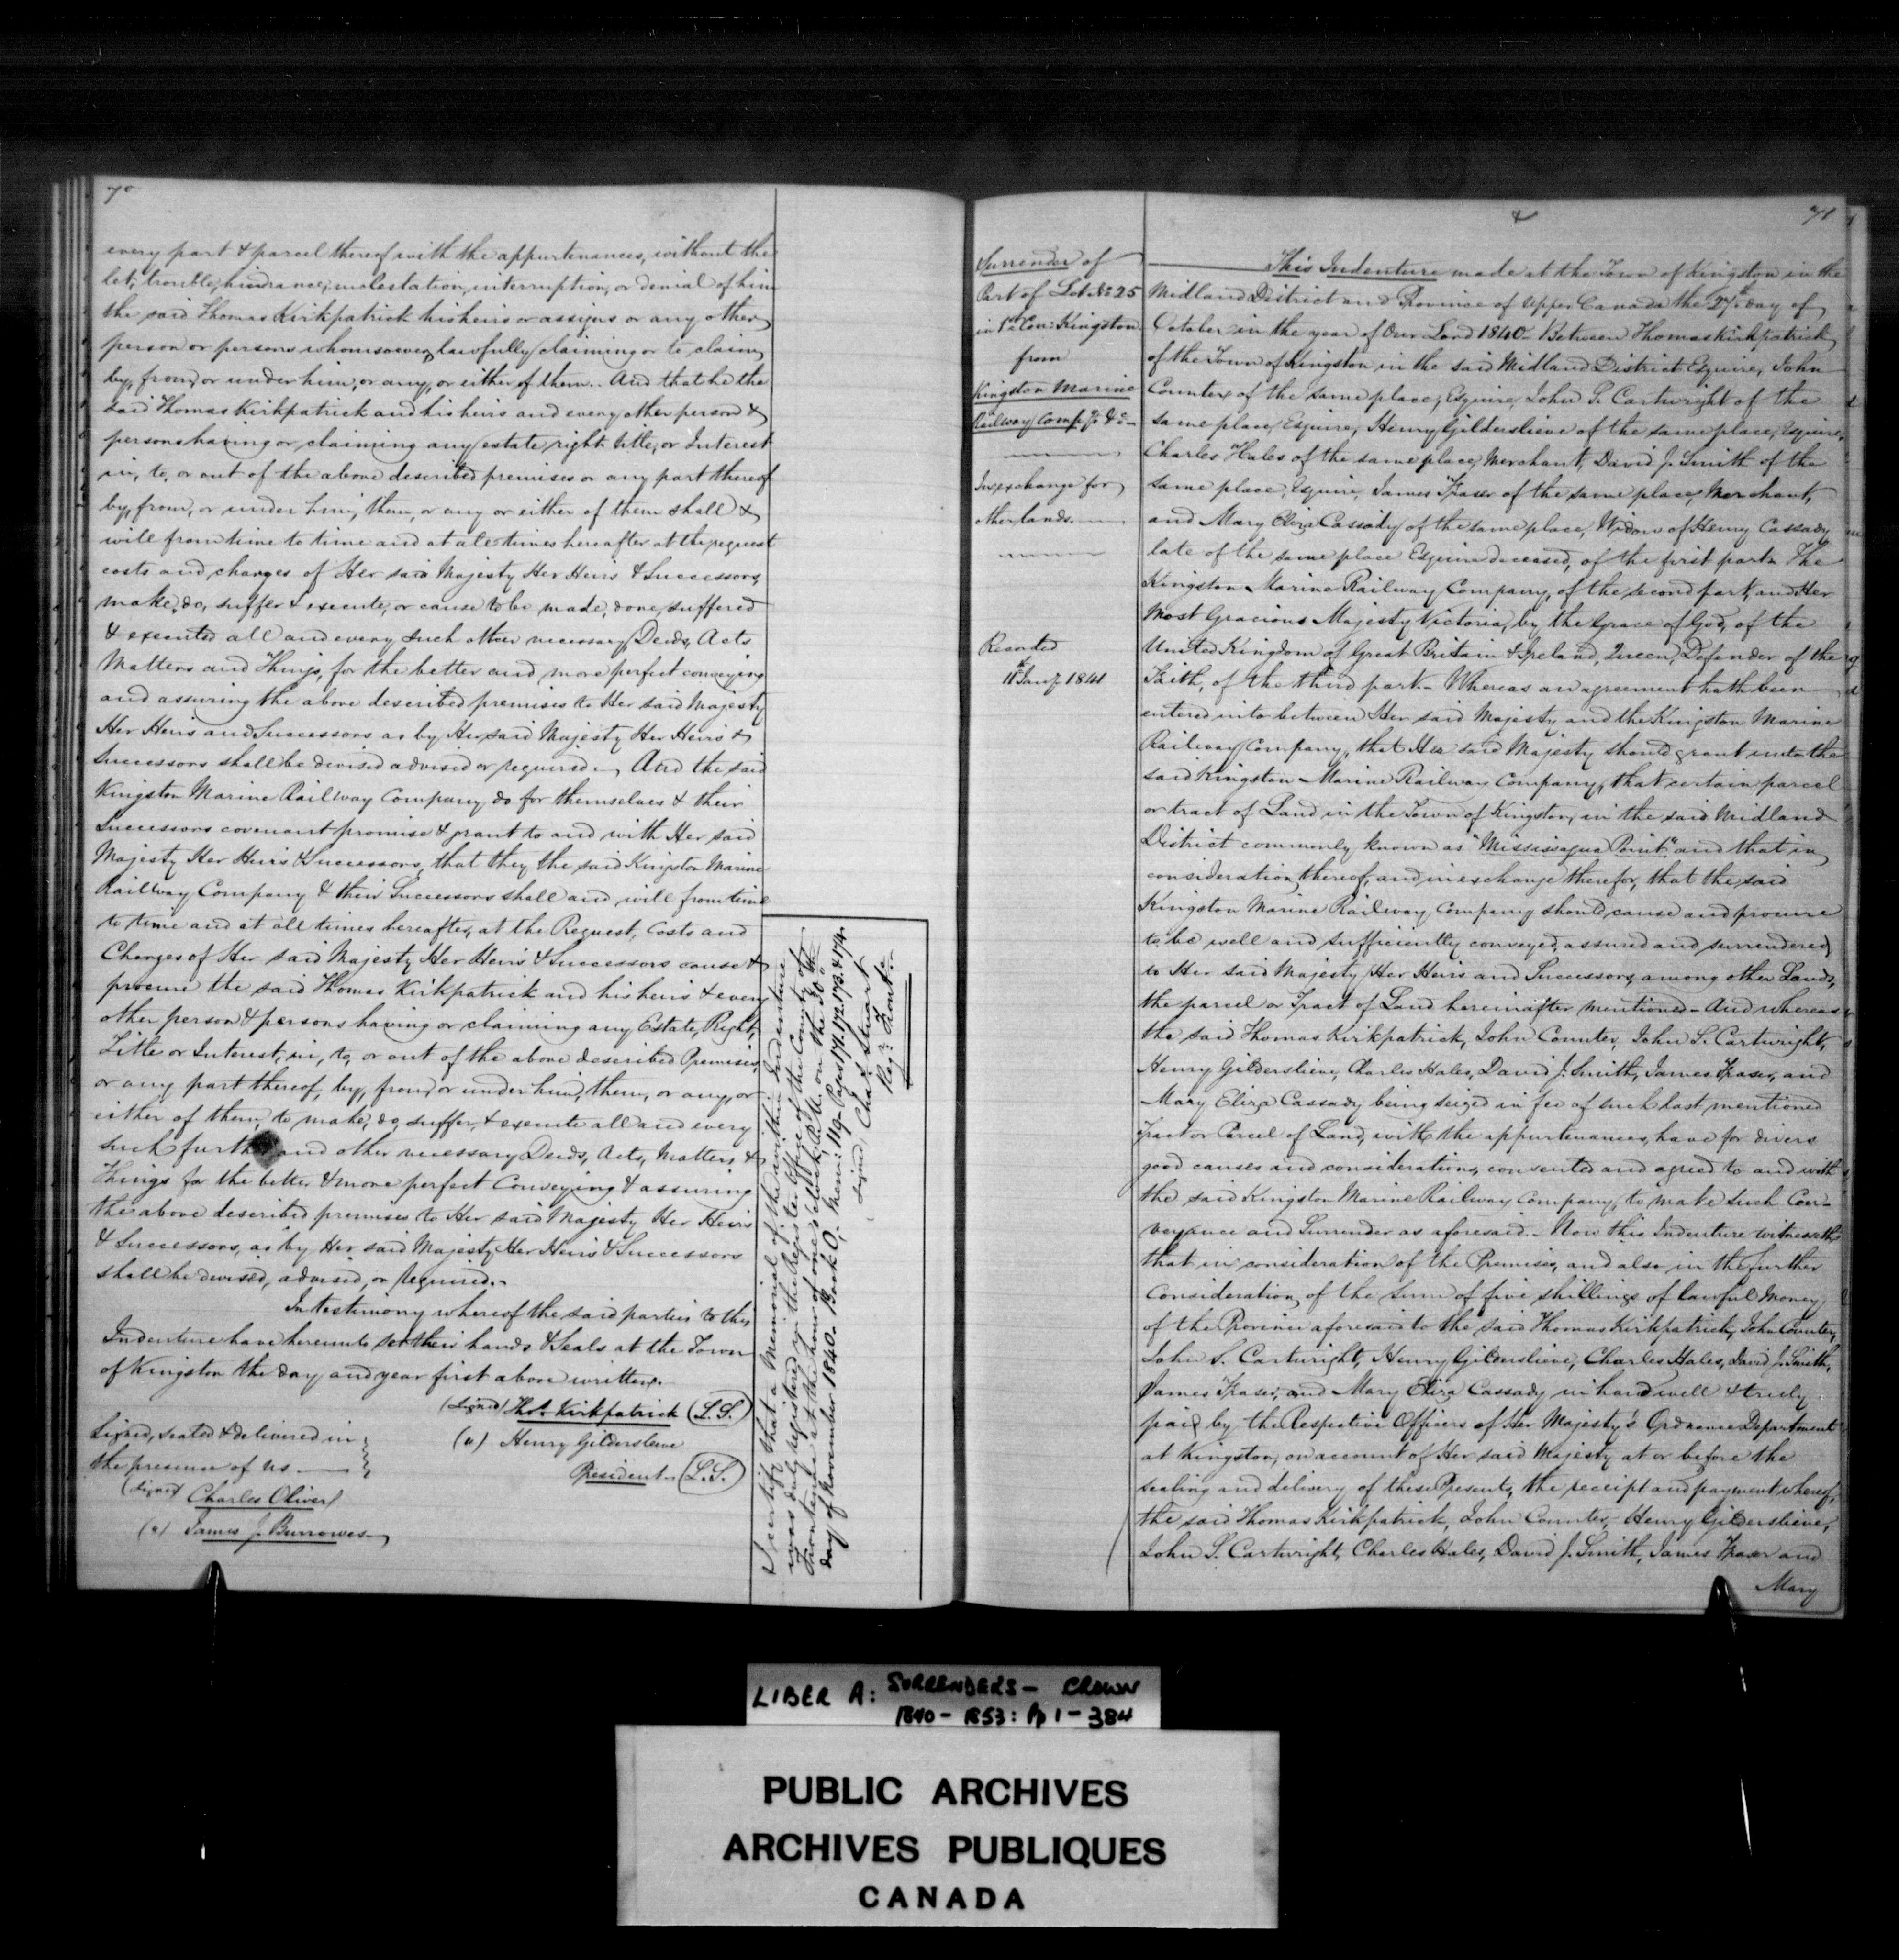 70
every part & parcel thereof with the appurtenances, without the
let, trouble, hindrance, molestation, interruption, or denial of him
the said Thomas Kirkpatrick his heirs or assigns or any other
person or persons whomsoever, lawfully claiming or to claim
by, from, or under him, or any, or either of them. And that he the
said Thomas Kirkpatrick and his heirs and every other person &
persons having or claiming any estate, right, title, or Interest
in, to, or out of the above described premises or any part thereof
by, from, or under him, them, or any or either of them shall &
will from time to time and at all times hereafter at the request
costs and charges of Her said Majesty Her Heirs & Successors,
make, do, suffer & execute, or cause to be made, done, suffered
& executed all and every such other necessary Deeds, Acts
Matters and Things, for the better and more perfect conveying
and assuring the above described premises to Her said Majesty
Her Heirs and Successors as by Her said Majesty Her Heirs &
Successors shall be devised advised or required. And the said
Kingston Marine Railway Company do for themselves & their
Successors covenant promise & grant to and with Her said
Majesty Her Heirs & Successors, that they the said Kingston Marine
Railway Company & their Successors shall and will from time
to time and at all times hereafter, at the Request, Costs and
Charges of Her said Majesty Her Heirs & Successors cause &
procure the said Thomas Kirkpatrick and his heirs & every
other person & persons having or claiming any Estate, Right,
Title or Interest, in, to, or out of the above described Premises,
or any part thereof, by, from, or under him, them, or any, or
either of them, to make, do, suffer, & execute all and every
such further and other necessary Deeds, Acts, Matters &
Things for the better & more perfect Conveying & assuring
the above described premises to Her said Majesty Her Heirs
& Successors, as by Her said Majesty Her Heirs & Successors
shall be devised, advised, or required.-
In testimony whereof the said parties to this
Indenture have hereunto set their hands & Seals at the Town
of Kingston the day and year first above written.
(Signed) Thos. Kirkpatrick (L.S.)
Signed, sealed & delivered in
the presence of us
(") Henry Gildersleve
President (L.S.)
(Signed) Charles Oliver
(") James J. Burrowes
I certify that a Memorial of the within Indenture
was duly registered in the Register Office of the County of
Frontenac at the hour of one o'clock, P.M. on the 30th
day of November 1840. Book O, Mem: 119. Pages 171. 172. 173. & 174.
(Signed) Chas. Stuart
Regr. Front.
71
Surrender of
Part of Lot No. 25
in 1st Con: Kingston
from
Kingston Marine
Railway Compy. &c.
In exchange for
other lands.
Recorded
11th Jany 1841
This Indenture made at the Town of Kingston in the
Midland District and Province of Upper Canada the 27th day of
October in the year of Our Lord 1840. Between Thomas Kirkpatrick
of the Town of Kingston in the said Midland District Esquire, John
Counter of the same place, Esquire, John S. Cartwright of the
same place, Esquire, Henry Gilderslieve of the same place, Esquire,
Charles Hales of the same place, Merchant, David J. Smith of the
same place, Esquire, James Fraser of the same place, Merchant,
and Mary Eliza Cassady of the same place, Widow of Henry Cassady
late of the same place Esquire deceased, of the first part. The
Kingston Marine Railway Company, of the second part, and Her
Most Gracious Majesty Victoria, by the Grace of God, of the
United Kingdom of Great Britain & Ireland, Queen, Defender of the
Faith, of the third part. Whereas an agreement hath been
entered into between Her said Majesty and the Kingston Marine
Railway Company, that Her said Majesty should grant unto the
said Kingston Marine Railway Company, that certain parcel
or tract of Land in the Town of Kingston, in the said Midland
District commonly known as "Mississagua Point" and that in
consideration thereof, and in exchange therefor, that the said
Kingston Marine Railway Company should cause and procure
to be well and sufficiently conveyed, assured and surrendered
to Her said Majesty Her Heirs and Successors, among other Lands,
the parcel or Tract of Land hereinafter mentioned. And whereas
the said Thomas Kirkpatrick, John Counter, John S. Cartwright,
Henry Gilderslieve, Charles Hales, David J. Smith, James Fraser, and
Mary Eliza Cassady being seized in fee of such last mentioned
Tract or Parcel of Land, with the appurtenances, have for divers
good causes and considerations, consented and agreed to and with
the said Kingston Marine Railway Company, to make such Con-
veyance and Surrender as aforesaid.- Now this Indenture witnesseth
that in consideration of the Premises, and also in the further
Consideration of the sum of five shillings of lawful Money
of the Province aforesaid to the said Thomas Kirkpatrick, John Counter,
John S. Cartwright, Henry Gilderslieve, Charles Hales, David J. Smith,
James Fraser, and Mary Eliza Cassady in hand well & truly
paid by the Respective Officers of Her Majesty's Ordnance Department
at Kingston, on account of Her said Majesty at or before the
sealing and delivery of these Presents, the receipt and payment whereof,
the said Thomas Kirkpatrick, John Counter, Henry Gilderslieve,
John S. Cartwright, Charles Hales, David J. Smith, James Fraser and
Mary
LIBER A: SURRENDERS - CROWN
1840 - 1853: Pp 1 - 384
PUBLIC ARCHIVES
ARCHIVES PUBLIQUES
CANADA